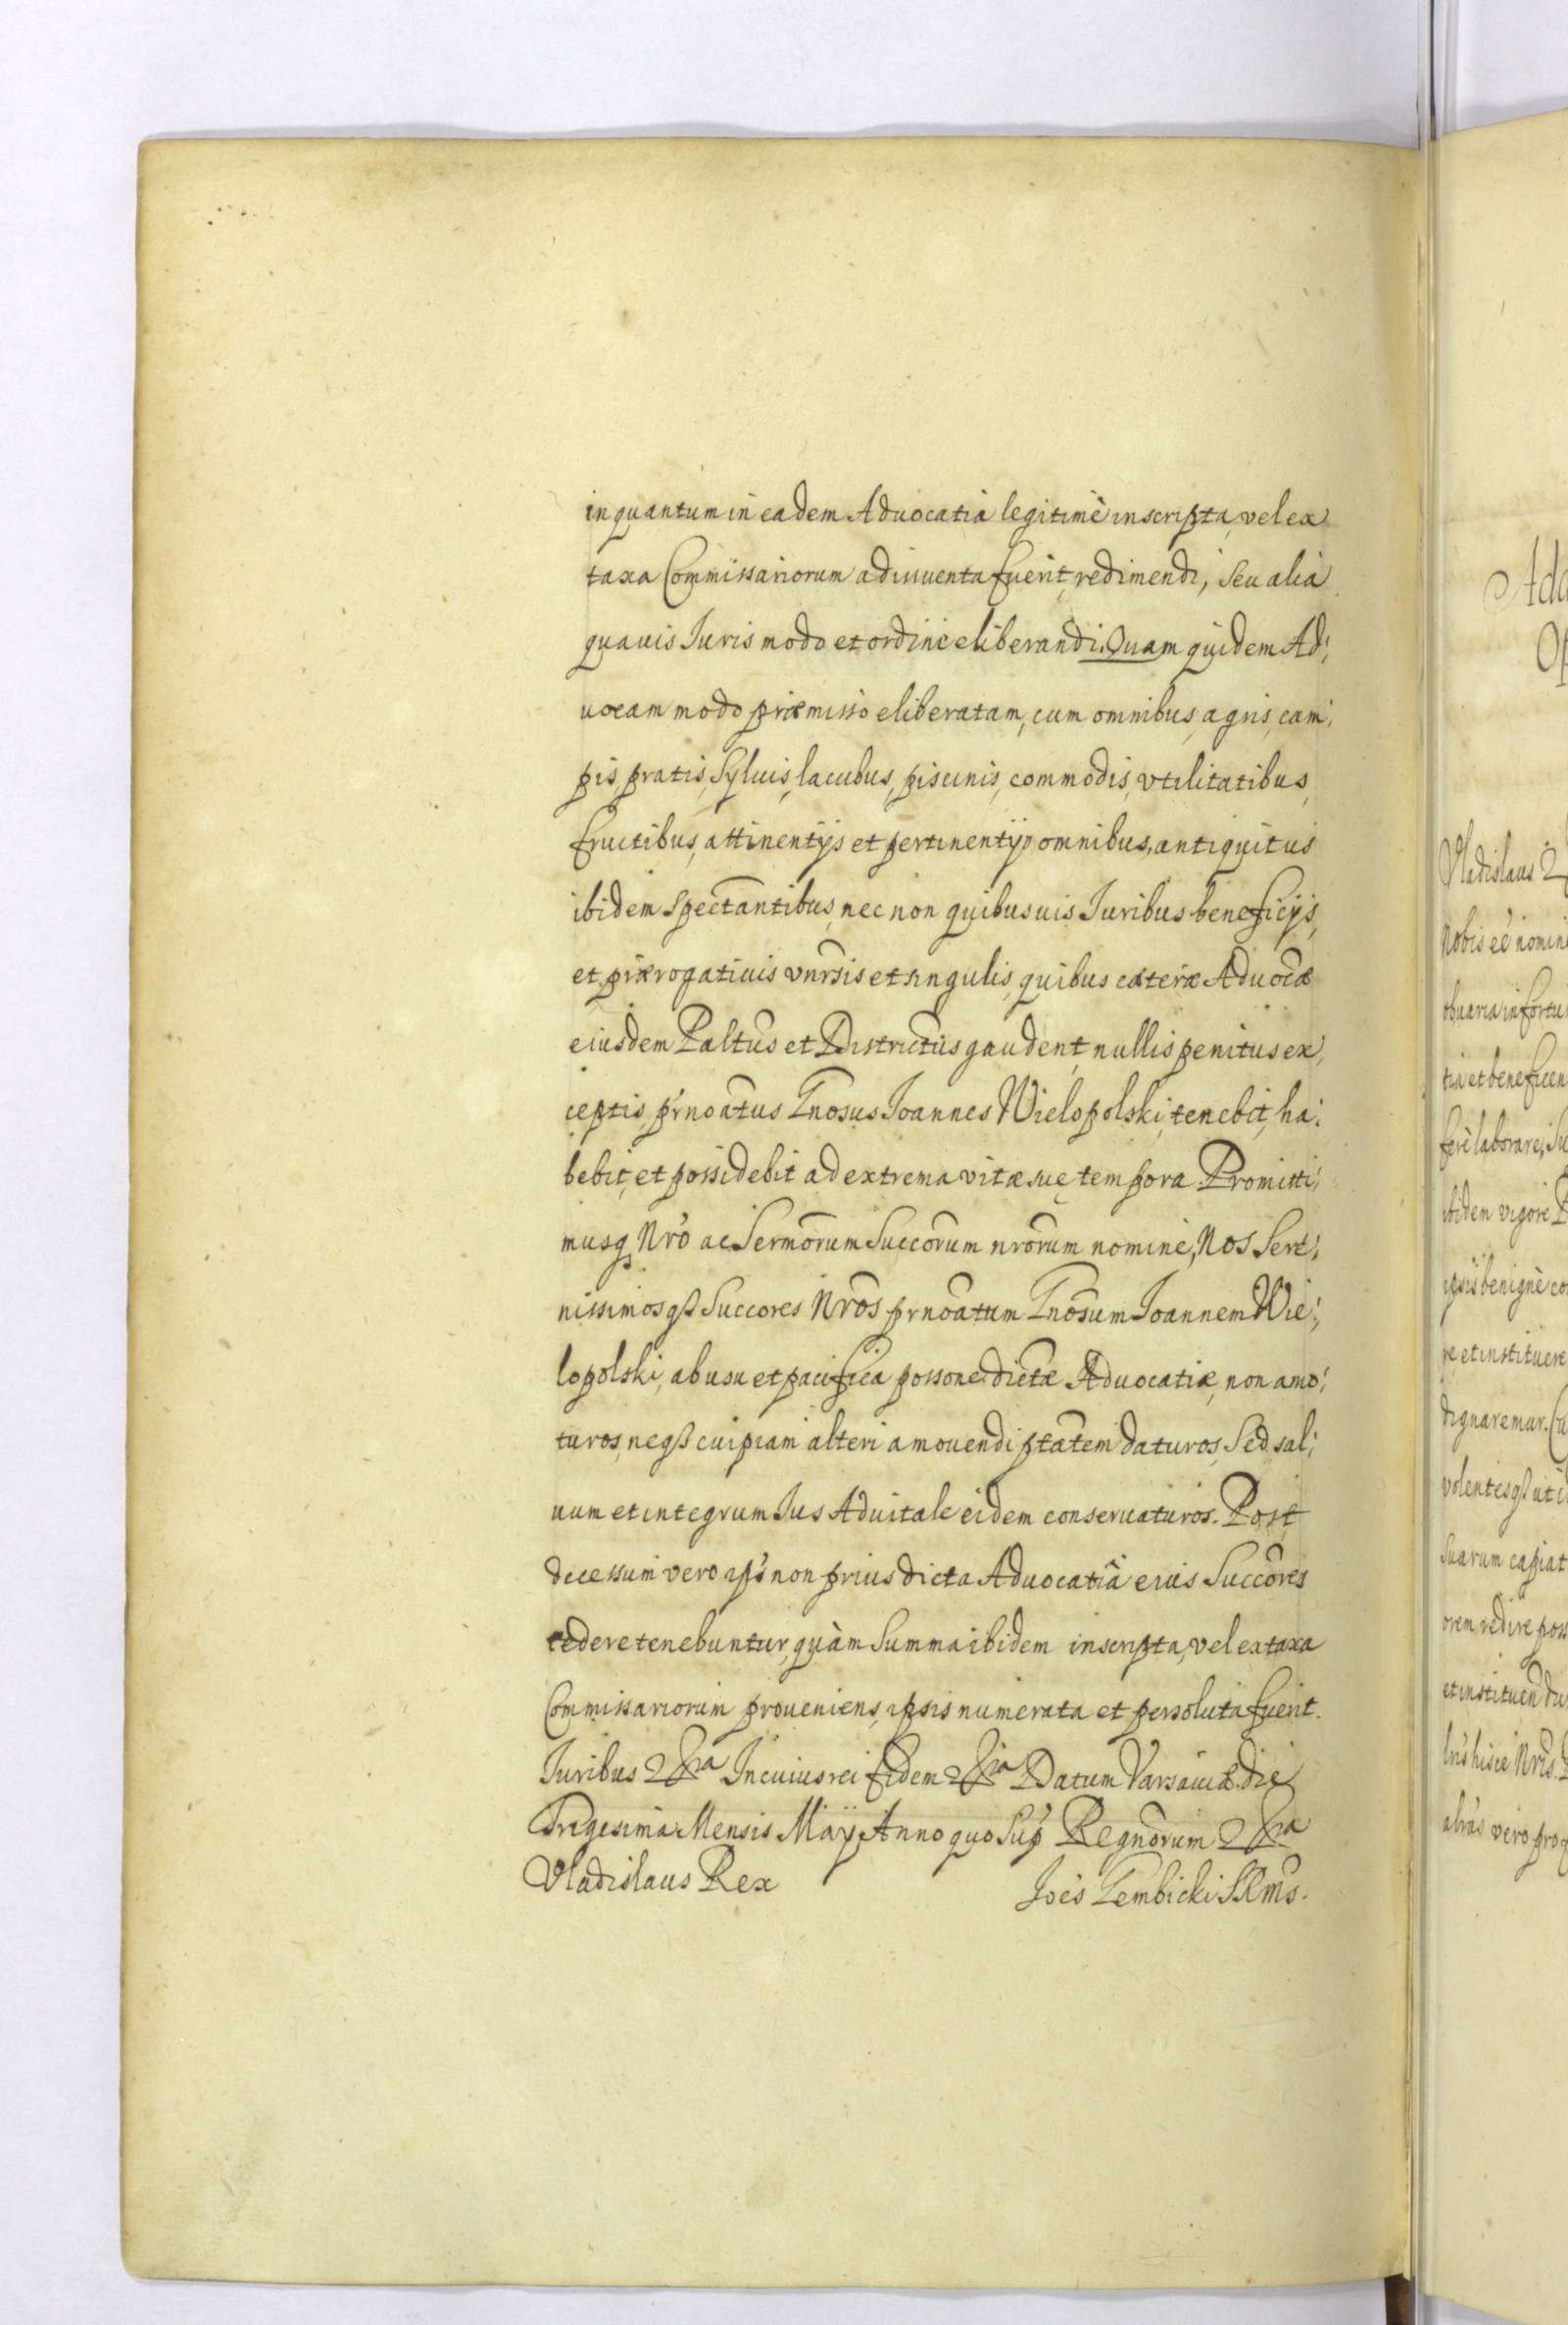 inquantum in eadem Aduocatia legitimè inscripta, vel ex
taxa Commissariorum adinuenta fuerit, redimendi, seu alia
quauis Iuris modo et ordine eliberandi. Quam quidem Ad:
uocam modo præmisso eliberatam, cum omnibus, agris, cam:
pis, pratis, Syluis, lacubus, piscinis, commodis, vtilitatibus,
fructibus, attinentijs et pertinentijs omnibus, antiquitus
ibidem spectantibus, nec non quibusuis Iuribus beneficijs,
et prærogatiuis vnrsis et singulis, quibus cæteræ Aduocæ
eiusdem Paltus et Districtus gaudent, nullis penitus ex,
ceptis, prnoatus Gnosus Joannes Wielopolski, tenebit, ha:
bebit, et possidebit ad extrema vitæ suę tempora. Promitti:
musq Nro ac Sermorum Succorum nrorum nomine, Nos Sere:
nissimosqß Succores Nros prnoatum Gnosum Joannem Wie:
lopolski, ab usu et pacifica possone dictæ Aduocatiæ, non amo:
turos, neqß cuipiam alteri amouendi ptatem daturos, Sed sal:
uum et integrum Ius Aduitale eidem conseruaturos. Post
decessum vero ips non prius dicta Aduocatiâ eius Succores
cedere tenebuntur, quàm Summa ibidem inscripta, vel ex taxa
Commissariorum proueniens, ipsis numerata et persoluta fuerit.
Iuribus &ra In cuius rei fidem &ra Datum Varsauiæ die
Trigesima Mensis Maÿ Anno quo Sup Regnorum &ra
Vladislaus Rex Joes Gembicki SRms.
Vladislaus